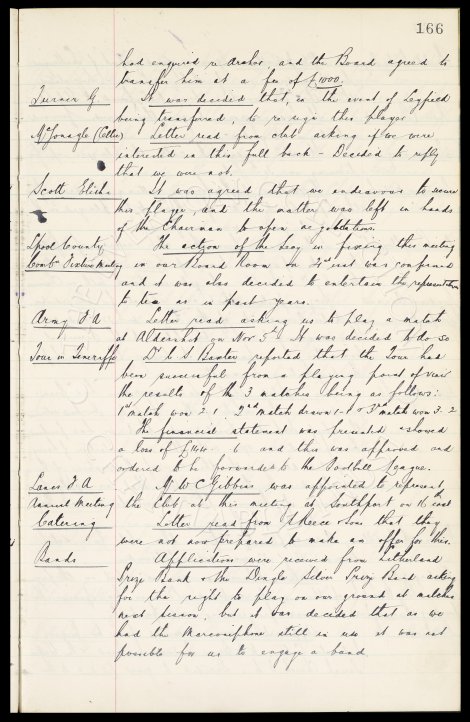 166
had enquired re and the Board agreed to
transfer him at a fee of £1000.
Turner G. It was decided that, in the event of Leyfield
being transferred, to re-sign this player
McGonagle (Celtic) Letter read from club asking if we were
interested in this full back - Decided to reply
that we were not.
Scott Elisha It was agreed that we endeavour to secure
this player, and the matter was left in hands
of the Chairman to open negotiations.
L'pool County The action of the Secy in fixing this meeting
Comb. Fixture Meeting in our Board Room on 21st inst was confirmed
and it was also decided to entertain the representatives
to tea as in past years.
Army F A Letter read asking us to play a match
at Aldershot on Nov 5th. It was decided to do so
Tour in Teneriffe Dr C S Baxter reported that the Tour had
been successful from a playing point of view
the results of the 3 matches being as follows:
1st match won 2-1, 2nd match drawn 1-1 & 3rd match won 3-2
The financial statement was presented & showed
a loss of and this was approved and
ordered to be forwarded to the Football League.
Lancs F A Mr W C Gibbins was appointed to represent
Annual Meeting the Club at this meeting at Southport on 16th inst
Catering Letter read from Reece & Sons that they
were not now prepared to make an offer for this.
Bands Applications were received from Litherland
Prize Band & the Dingle Silver Prize Band asking
for the right to play on our ground at matches
next season, but it was decided that as we
had the Marconiphone still in use it was not
possible for us to engage a band